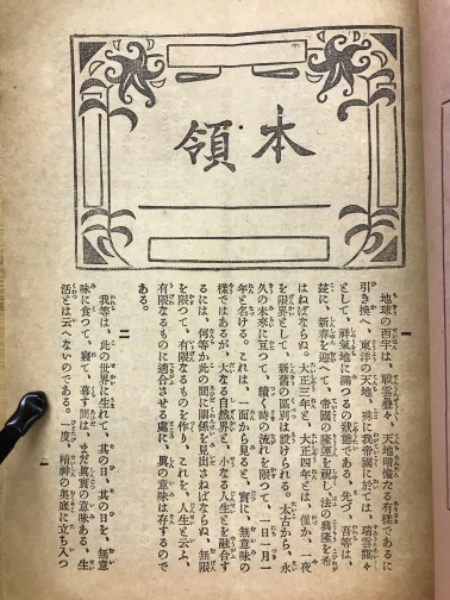 本領
一
地球の西半は、戰雲靉々、天地暗憺たる有樣であるに
引き換へ、東洋の天地、殊に我帝國に於ては、瑞雲靉々
として、祥氣地に滿つるの狀態である、先づ、吾等は、
茲に、新春を迎へて、帝國の隆運を祝し、法の興隆を希
はねばならぬ。大正三年と、大正四年とは、僅か、一夜
を限界として、新舊の區別は設けられる。太古から、永
久の未來に亙つて、續く時の流れを限つて、一日一月一
年と名ける。これは、一面から見ると、實に、無意味の
樣ではあるが、大なる自然界と、小なる人生とを融合す
るには、何等か此の間に關係を見出さねばならぬ、無限
を限つて、有限なるものを作り、これを、人生と云ふ、
有限なるものに適合させる處に、眞の意味は存するので
ある。
二
我等は、此の世界に生れて、其の日、其の日を、無意
味に食つて、寢て、暮す間は、まだ眞實の意味ある、生
活とは云へないのである。一度、精神の奧底に立ち入つ